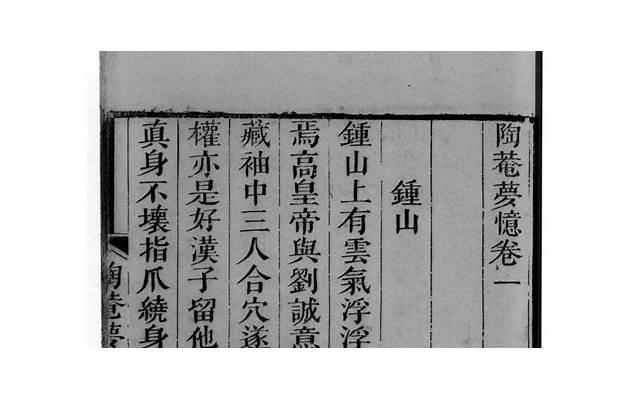 陶菴夢憶卷一
鍾山
鍾山上有雲氣浮浮
焉高皇帝與劉誠意
藏袖中三人合穴遂
權亦是好漢子留他
真身不壞指爪繞身
陶菴夢